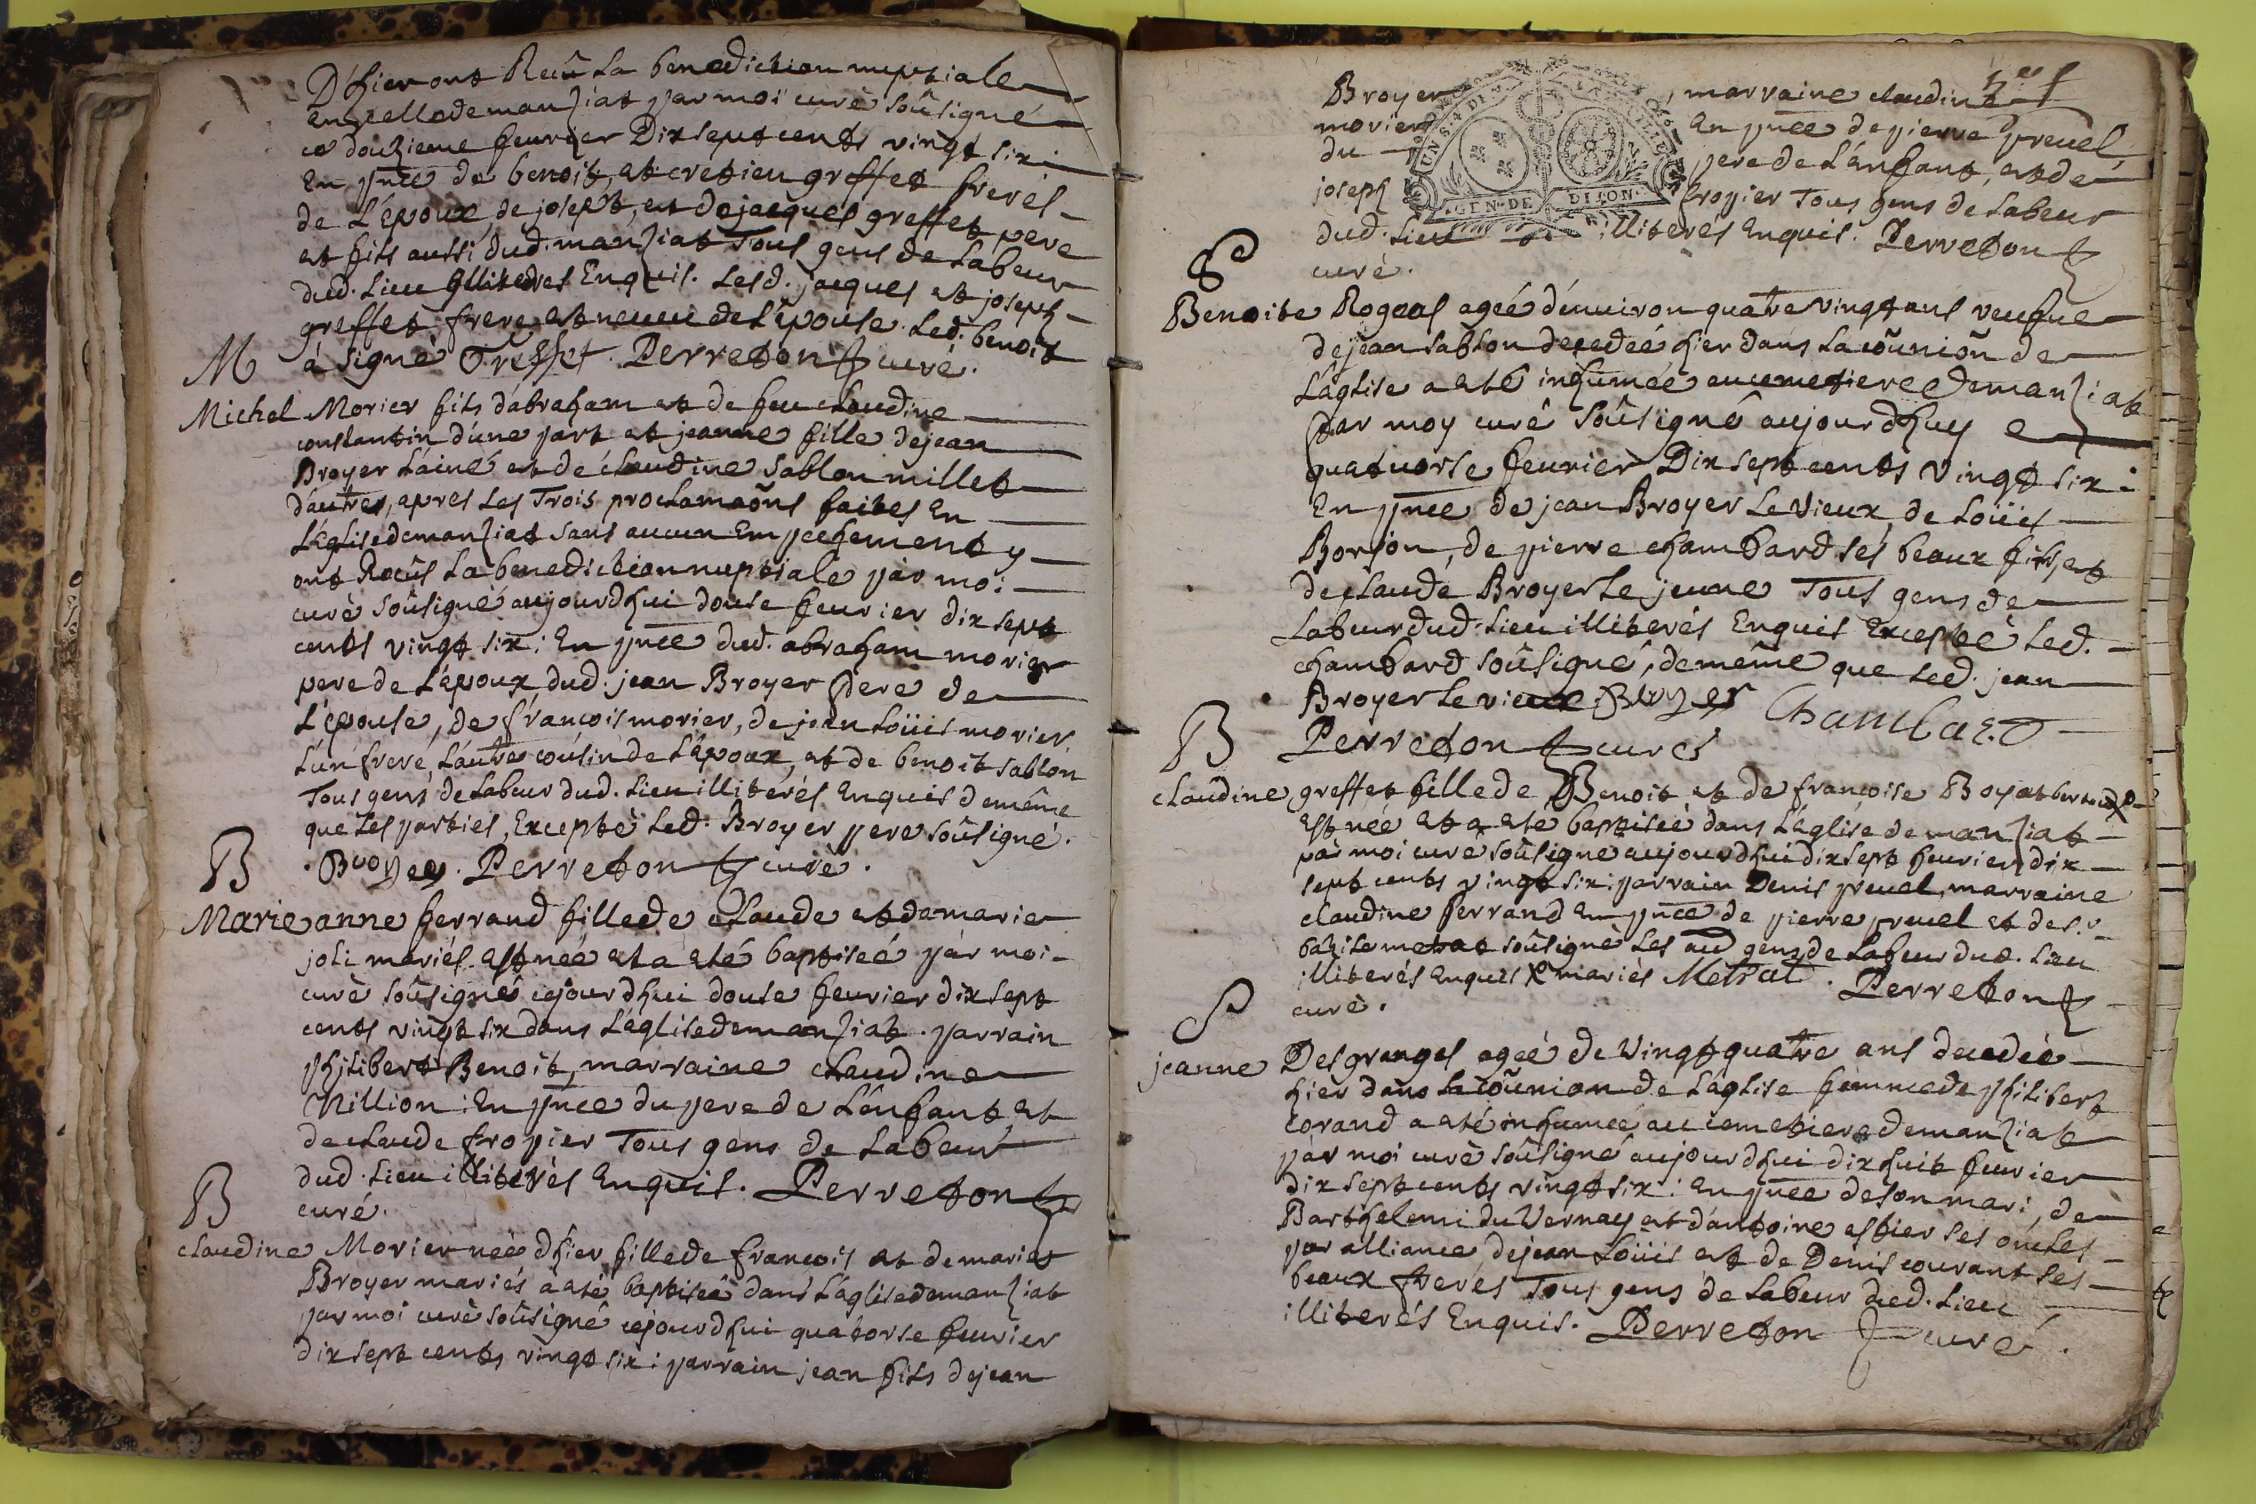 D'hier ont Recû La benediction nuptiale
en celle de manziat par moi curè soûsigné
ce douzieme feuvrier Dix sept cents vingt six :
En pnce de benoit, et cretien greffet freres
de L'époux, de joseph, et de jacques greffet pere
et fils aussi dud. manziat Tous gens de Labeur
dud. Lieu Illiterés Enquis. Lesd. jacques et joseph
greffet frere et neveu de L'épouse. Led. benoit
à signé Greffet. Perreton curé.
M
Michel Morier fils d'abraham et de feu claudine
constantin d'une part et jeanne fille de jean
Broyer L'ainé et de claudine Sablon millet
d'autres, apres Les Trois proclamaõns faites en
L'église de manziat sans aucun Empechement y
ont Recûs La benediction nuptiale par moi
curé soûsigné aujourdhui douse feuvrier dix sept
cents vingt six : En pnce dud. abraham morier
pere de L'époux, dud. jean Broyer pere de
L'épouse, de francois morier, de jean Loüis morier
L'un frere, L'autre cousin de L'époux, et de benoit sablon
Tous gens de Labeur dud. Lieu illiterés Enquis de même
que Les parties, Excepté Led. Broyer pere soûsigné.
Broyer. Perreton curé.
B
Marie anne ferrand fille de claude et de marie
joli mariés est née et a eté baptiseé par moi
curè soûsigné cejourdhui douse feuvrier dix sept
cents vingt six dans L'église de manziat. parrain
philibert Benoit, marraine claudine
Million : En pnce du pere de L'enfant, et
de claude fropier Tous gens de Labeur
dud. Lieu illiterés Enquis. Perreton
curé.
B
claudine Morier neé d'hier fille de francois et de marie
Broyer mariés à eté baptiseé dans L'église de manziat
par moi curè soûsigné cejourdhui quatorse feuvrier
dix sept cents vingt six : parrain jean fils de jean
Broyer, marraine claudine
morier En pnce de pierre preuel
du pere de L'enfant, et de
joseph fropier Tous gens de Labeur
dud. Lieu illiterés Enquis. Perreton
curè.
GEN. DE DIJON
S
Benoite Rogeas ageé d'environ quatre vingt ans veufue
de jean sablon decedeé hier dans La coũnioñ de
L'église a eté inhumeé au cemetiere de manziat
par moy curé soûsigné aujourdhuy
quatuorse feuvrier Dix sept cents vingt six :
En pnce de jean Broyer Le vieux, de Loüis
Borjon, de pierre chambard ses beaux fils, et
de claude Broyer Le jeune Tous gens de
Labeur dud. Lieu illiterés Enquis Excepté Led.
chambard soûsigné, de même que Led. jean
Broyer Le vieux Broyer Chambard
Perreton curé
B
claudine greffet fille de Benoit et de francoise Boyat
est neé et a eté baptiseé dans L'église de manziat
par moi curé soûsigné aujourdhui dix sept feuvrier dix
sept cents vingt six : parrain Denis preuel, marraine
claudine ferrand en pnce de pierre preuel et de
bazile metrat soûsigné Les au gens de Labeur dud. Lieu
illiterés Enquis X mariés Metrat. Perreton
curé.
S
jeanne Desgranges ageé de vingt quatre ans decedeé
hier dans La coũnion de L'église femme de philibert
corand a eté inhumeé au cemetiere de manziat
par moi curè soûsigné aujourdhui dix huit feuvrier
dix sept cents vingt six : En pnce de son mari, de
Barthelemi du Vernay et d'antoine estier ses oncles
par alliance de jean Loüis et de Denis courant ses
beaux freres Tous gens de Labeur dud. Lieu
illiterés Enquis. Perreton curé.